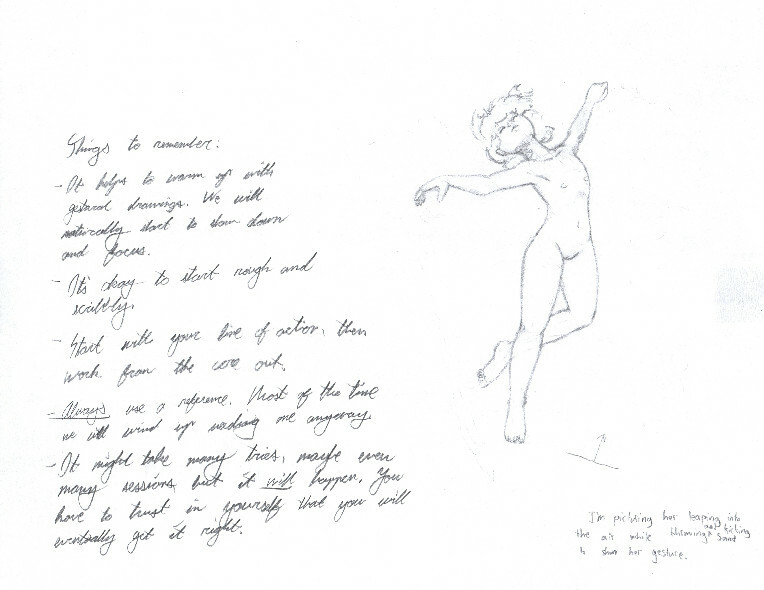 Things to remember:
- It helps to warm up with
gestural drawings. We will
naturally start to slow down
and focus.
- It's okay to start rough and
scribbly.
- Start with your line of action, then
work from the core out.
- Always use a reference. Most of the time
we will wind up needing one anyway.
- It might take many tries, maybe even
many sessions, but it will happen. You
have to trust in yourself that you will
eventually get it right.
I'm picturing her leaping into
the air while throwing and kicking sand
to show her gesture.